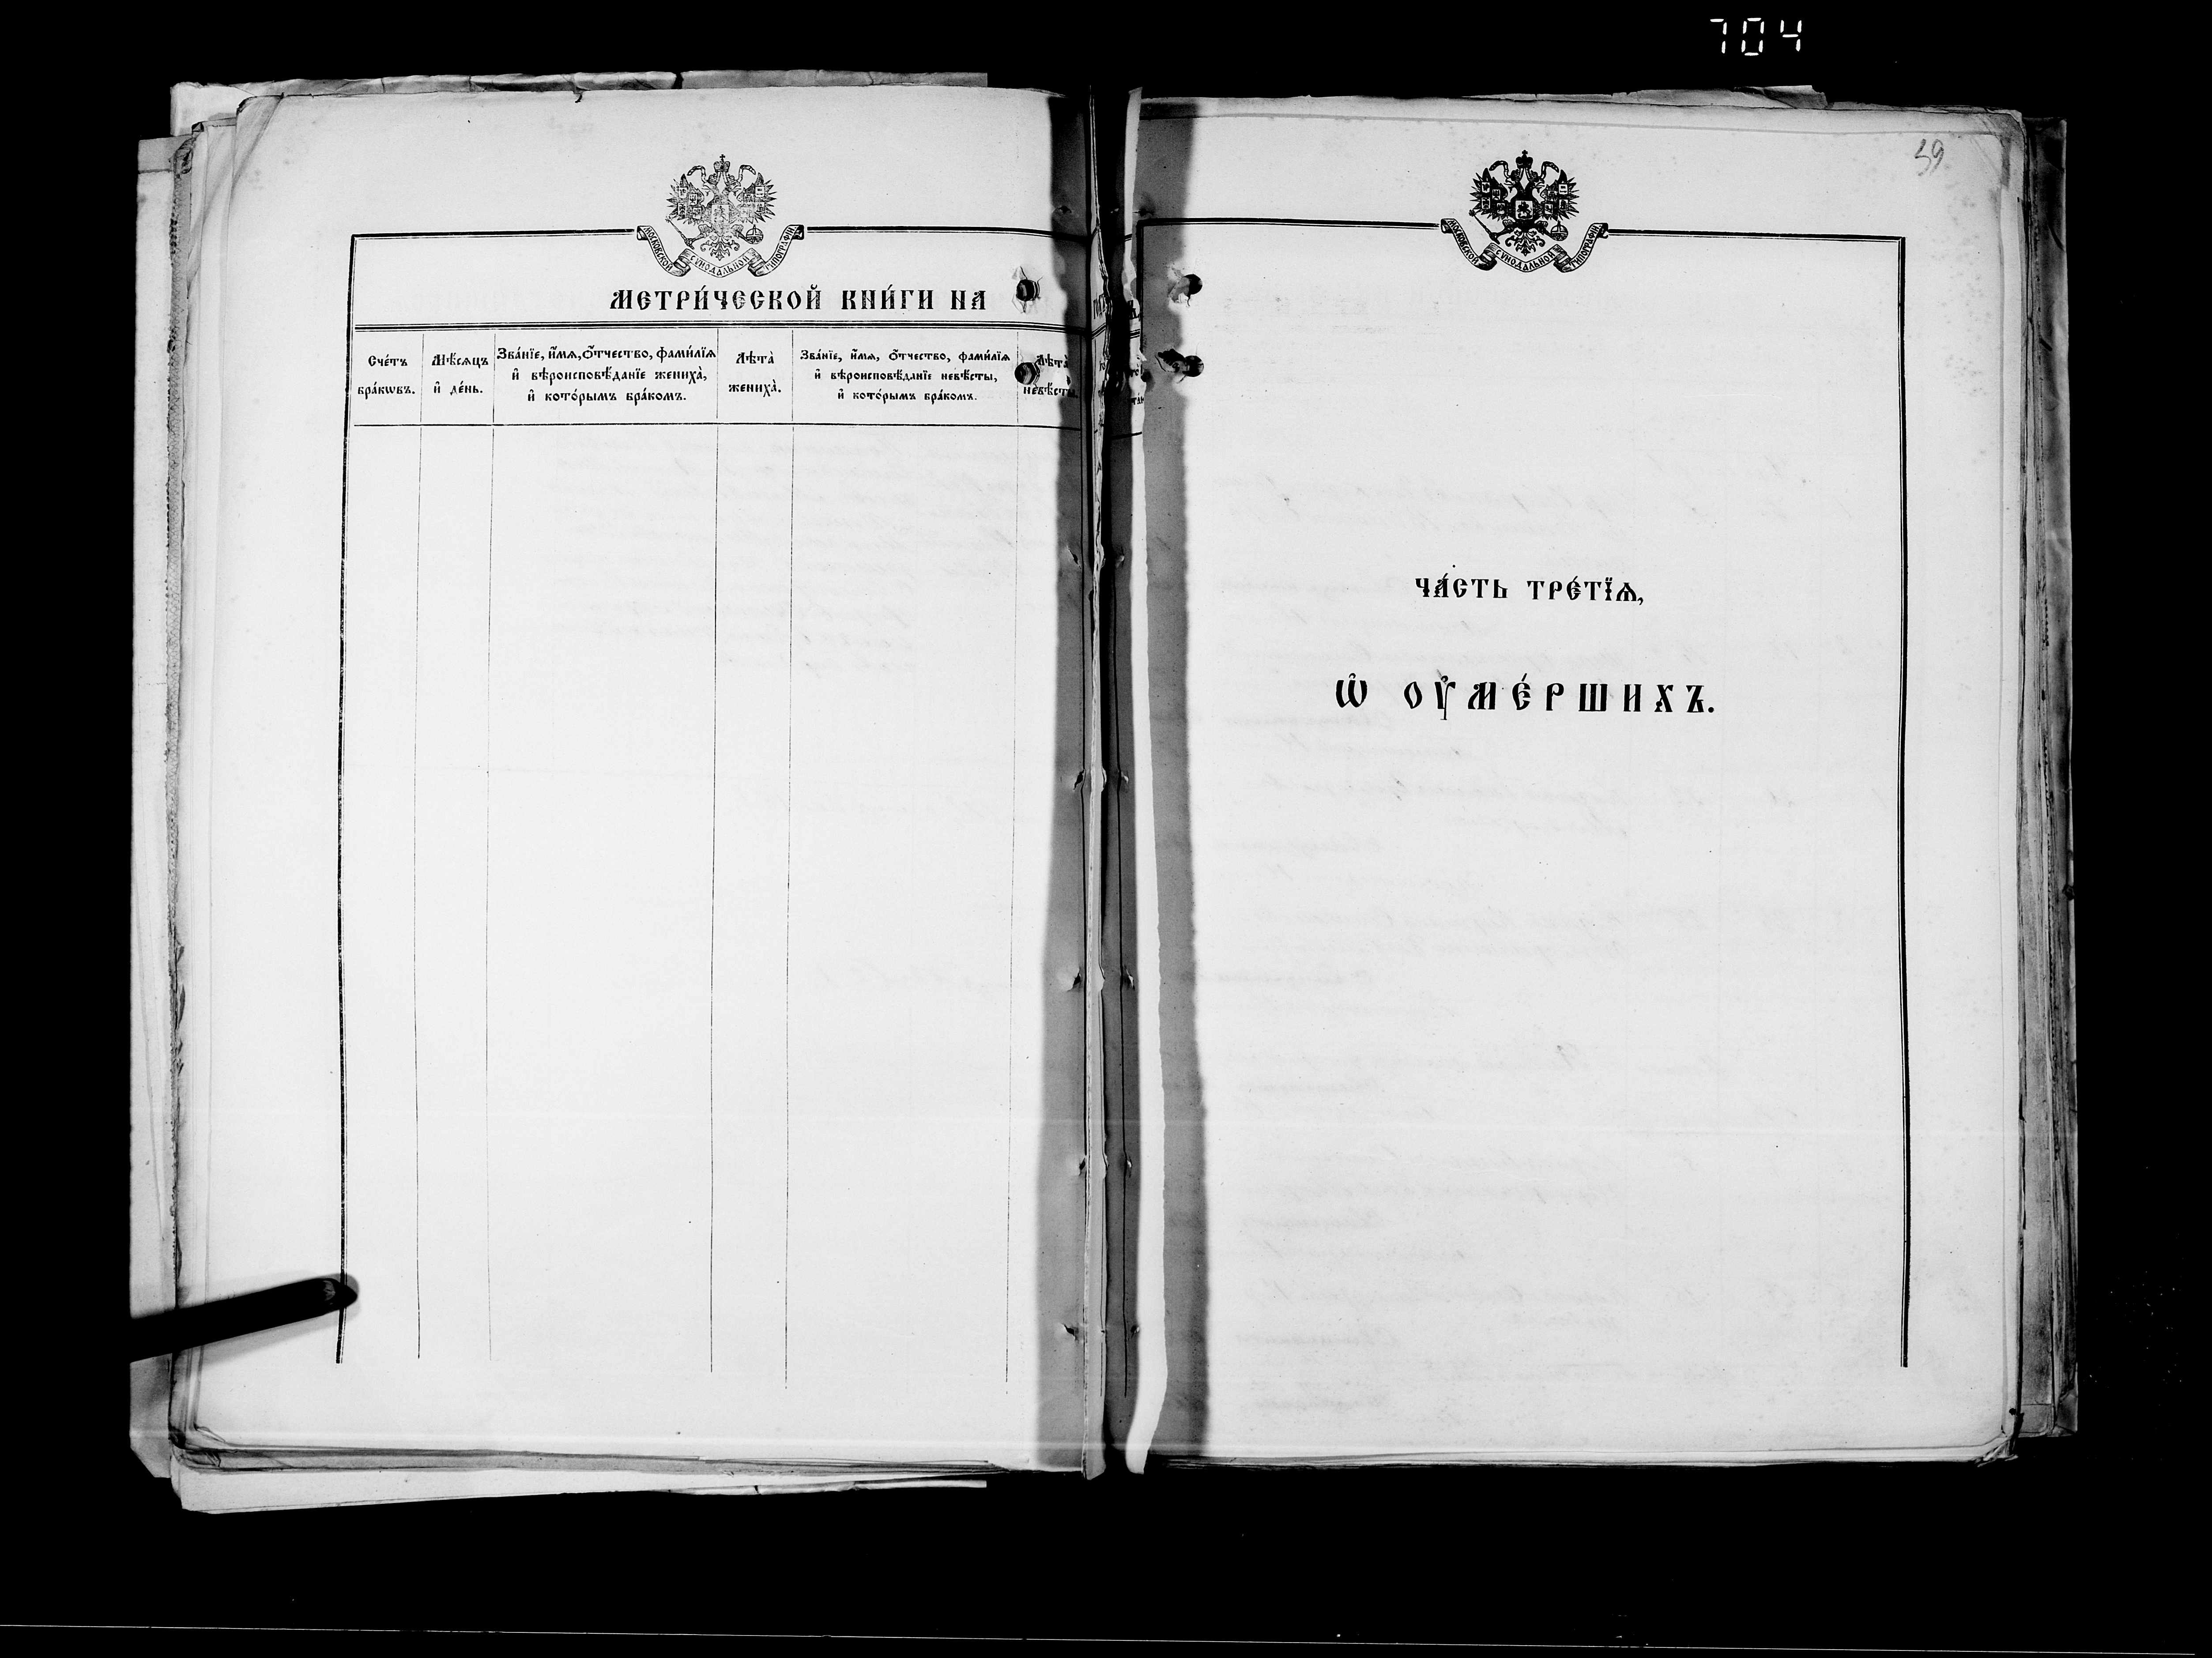 704
МОСКОВСКОЙ СѴНОДАЛЬНОЙ ТИПОГРАФІИ
МЕТРИ́ЧЕСКОЙ КНИ́ГИ НА
Сче́тъ
бра́кѡвъ.
Мѣ́сѧцъ
и҆ де́нь.
Зва́нїе, и҆́мѧ, ѻ҆́тчество, фами́лїѧ
и҆ вѣроисповѣ́данїе жениха̀,
и҆ кото́рымъ бра́комъ.
Лѣта̀
жениха̀.
Зва́нїе, и҆́мѧ, ѻ҆́тчество, фами́лїѧ
и҆ вѣроисповѣ́данїе невѣ́сты,
и҆ кото́рымъ бра́комъ.
Лѣта̀
невѣ́сты
59
МОСКОВСКОЙ СѴНОДАЛЬНОЙ ТИПОГРАФІИ
ЧА́СТЬ ТРЕ́ТЇѦ,
Ѡ҆ ОУ҆МЕ́РШИХЪ.